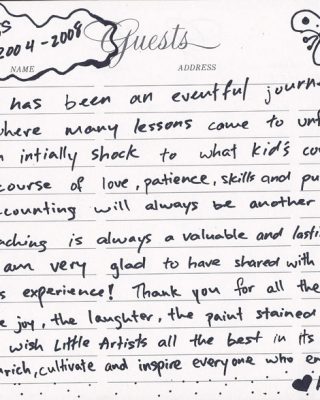 2004-2008
Guests
NAME ADDRESS
has been an eventful journe
where many lessons come to unf
intially shock to what kid's co
course of love, patience, skills and pu
ccounting will always be another
aching is always a valuable and lasti
am very glad to have shared with
s experience! Thank you for all the
e joy, the laughter, the paint stained
wish Little Artists all the best in its
nrich, cultivate and inspire everyone who en